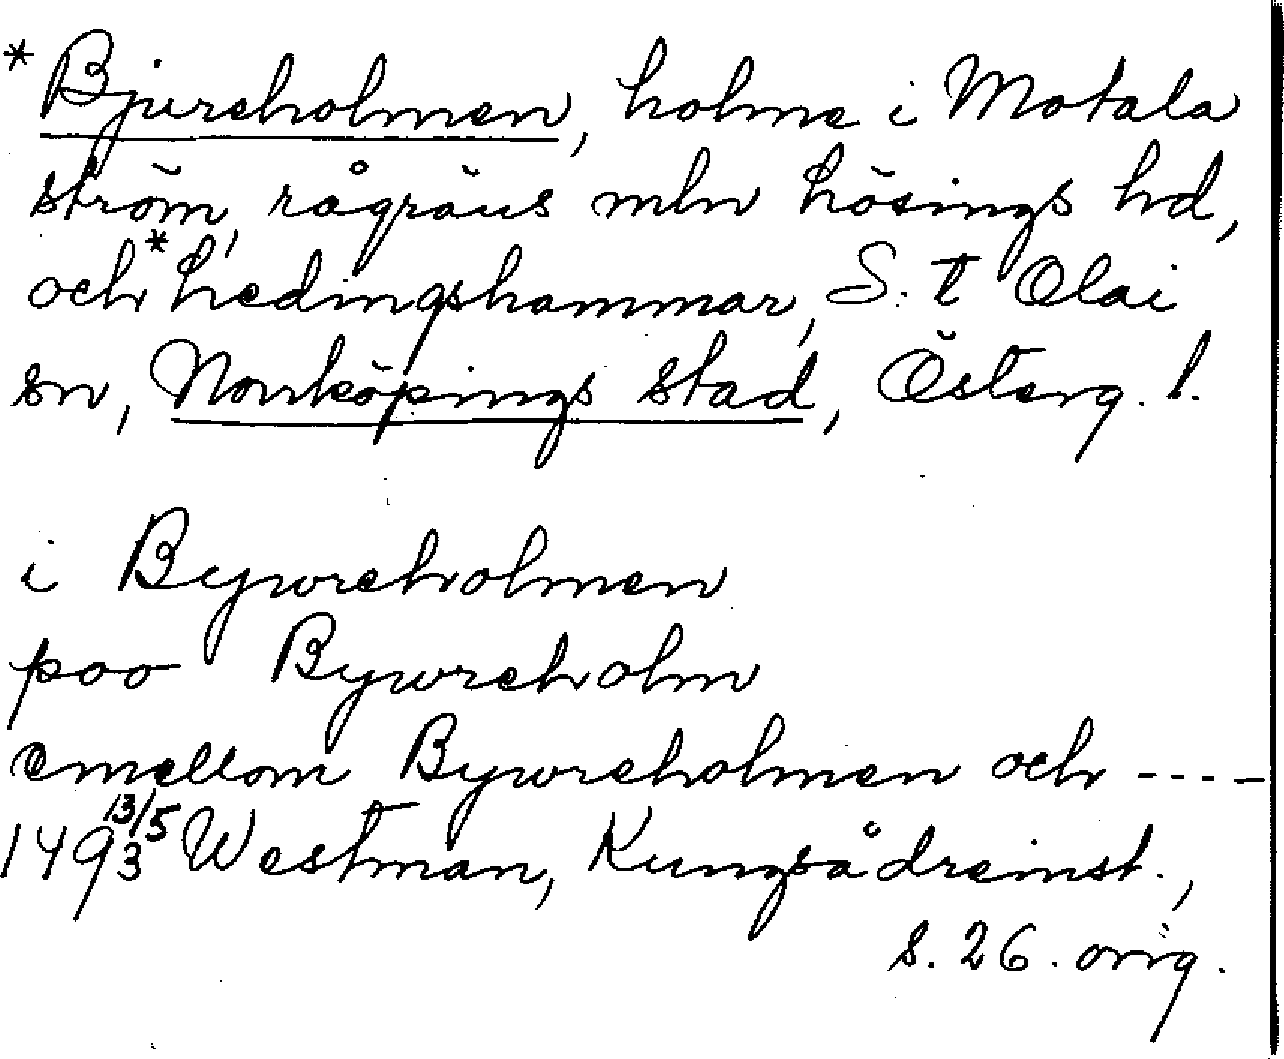 *Bjureholmen, holme i Motala
ström, rågräns mln Lösings hd,
och *Ledingshammar, S:t Olai
sn, Norrköpings stad, Österg. l.
i Bywreholmen
poo Bywreholm
emellom Bywreholmen och ----
1493 13/5 Westman, Kungsådreinst.,
s. 26. orig.